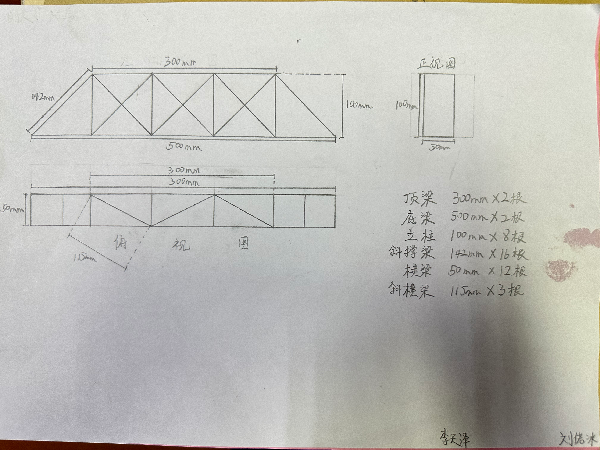 300mm
142mm
100mm
500mm
正视图
100mm
50mm
300mm
300mm
50mm
115mm
俯 视 图
顶梁 300mm×2根
底梁 500mm×2根
立柱 100mm×8根
斜撑梁 142mm×16根
横梁 50mm×12根
斜横梁 115mm×3根
李天泽